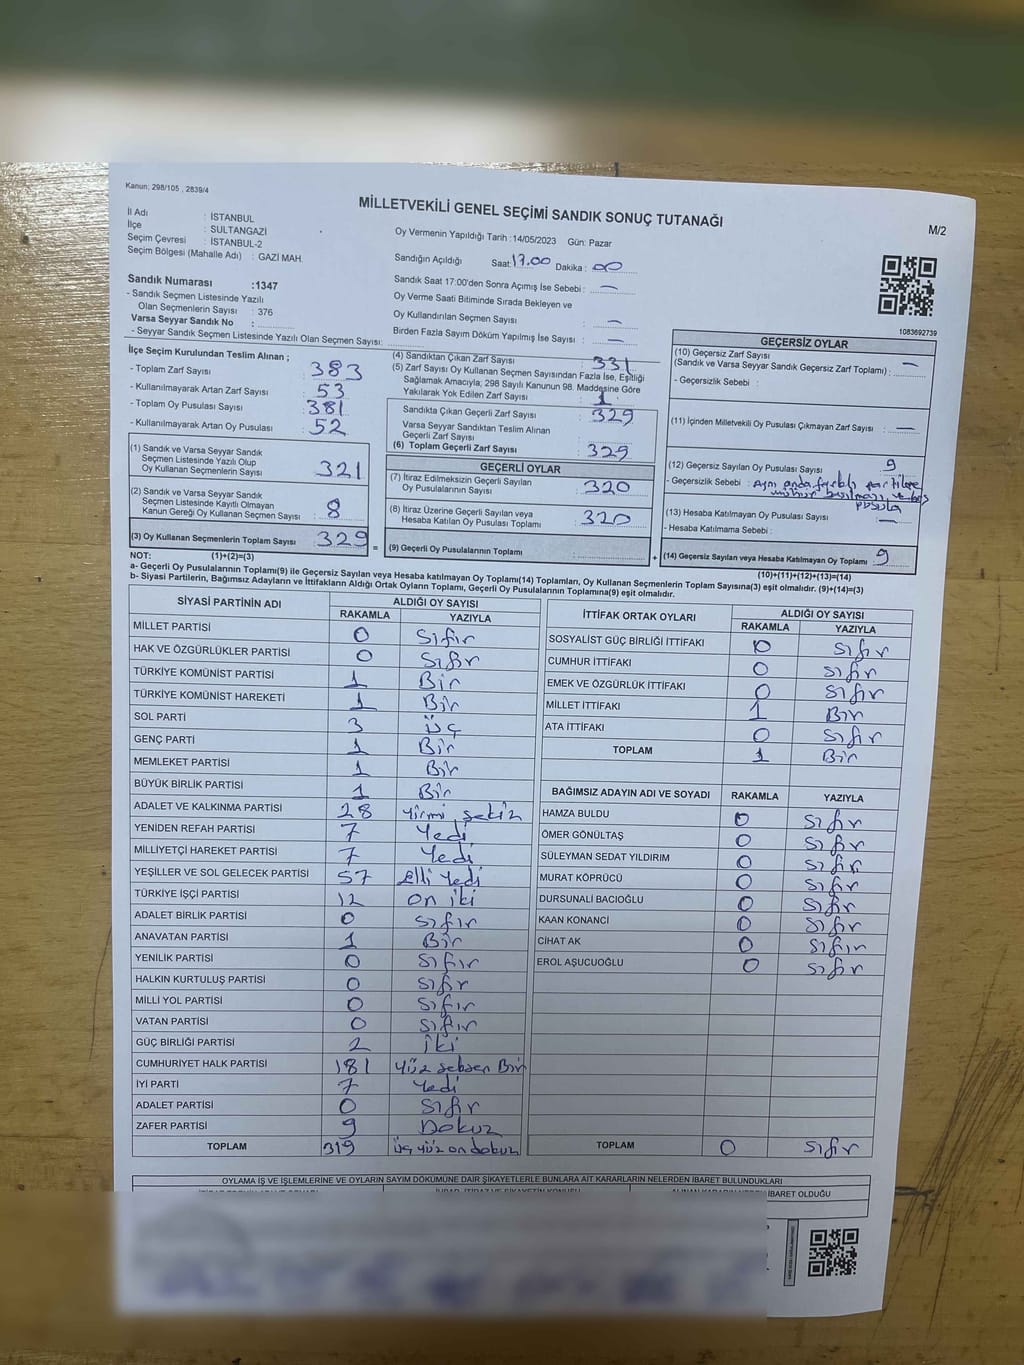 Kanun; 298/105 , 2839/4
MİLLETVEKİLİ GENEL SEÇİMİ SANDIK SONUÇ TUTANAĞI
M/2
İl Adı : İSTANBUL
İlçe : SULTANGAZİ
Seçim Çevresi : İSTANBUL-2
Seçim Bölgesi (Mahalle Adı) : GAZİ MAH.
Oy Vermenin Yapıldığı Tarih :14/05/2023 Gün: Pazar
Sandığın Açıldığı Saat:17.00 Dakika : 00
Sandık Saat 17:00'den Sonra Açımış İse Sebebi : —
Oy Verme Saati Bitiminde Sırada Bekleyen ve
Oy Kullandırılan Seçmen Sayısı : —
Birden Fazla Sayım Döküm Yapılmış İse Sayısı : —
Sandık Numarası :1347
- Sandık Seçmen Listesinde Yazılı
Olan Seçmenlerin Sayısı : 376
Varsa Seyyar Sandık No :
- Seyyar Sandık Seçmen Listesinde Yazılı Olan Seçmen Sayısı:
1083692739
İlçe Seçim Kurulundan Teslim Alınan ;
- Toplam Zarf Sayısı : 383
- Kullanılmayarak Artan Zarf Sayısı : 53
- Toplam Oy Pusulası Sayısı : 381
- Kullanılmayarak Artan Oy Pusulası : 52
(1) Sandık ve Varsa Seyyar Sandık
Seçmen Listesinde Yazılı Olup
Oy Kullanan Seçmenlerin Sayısı : 321
(2) Sandık ve Varsa Seyyar Sandık
Seçmen Listesinde Kayıtlı Olmayan
Kanun Gereği Oy Kullanan Seçmen Sayısı : 8
(3) Oy Kullanan Seçmenlerin Toplam Sayısı : 329
(4) Sandıktan Çıkan Zarf Sayısı : 331
(5) Zarf Sayısı Oy Kullanan Seçmen Sayısından Fazla İse, Eşitliği
Sağlamak Amacıyla; 298 Sayılı Kanunun 98. Maddesine Göre
Yakılarak Yok Edilen Zarf Sayısı : 1
Sandıkta Çıkan Geçerli Zarf Sayısı : 329
Varsa Seyyar Sandıktan Teslim Alınan
Geçerli Zarf Sayısı :
(6) Toplam Geçerli Zarf Sayısı : 329
GEÇERLİ OYLAR
(7) İtiraz Edilmeksizin Geçerli Sayılan
Oy Pusulalarının Sayısı : 320
(8) İtiraz Üzerine Geçerli Sayılan veya
Hesaba Katılan Oy Pusulası Toplamı : 320
= (9) Geçerli Oy Pusulalarının Toplamı : +
GEÇERSİZ OYLAR
(10) Geçersiz Zarf Sayısı
(Sandık ve Varsa Seyyar Sandık Geçersiz Zarf Toplamı) : —
- Geçersizlik Sebebi :
(11) İçinden Milletvekili Oy Pusulası Çıkmayan Zarf Sayısı : —
(12) Geçersiz Sayılan Oy Pusulası Sayısı : 9
- Geçersizlik Sebebi : aynı anda farklı partilere
mühür basılması ve boş
pusula
(13) Hesaba Katılmayan Oy Pusulası Sayısı : —
- Hesaba Katılmama Sebebi :
(14) Geçersiz Sayılan veya Hesaba Katılmayan Oy Toplamı : 9
NOT: (1)+(2)=(3)
(10)+(11)+(12)+(13)=(14)
a- Geçerli Oy Pusulalarının Toplamı(9) ile Geçersiz Sayılan veya Hesaba katılmayan Oy Toplamı(14) Toplamları, Oy Kullanan Seçmenlerin Toplam Sayısına(3) eşit olmalıdır. (9)+(14)=(3)
b- Siyasi Partilerin, Bağımsız Adayların ve İttifakların Aldığı Ortak Oyların Toplamı, Geçerli Oy Pusulalarının Toplamına(9) eşit olmalıdır.
SİYASİ PARTİNİN ADI ALDIĞI OY SAYISI
RAKAMLA YAZIYLA
MİLLET PARTİSİ 0 Sıfır
HAK VE ÖZGÜRLÜKLER PARTİSİ 0 Sıfır
TÜRKİYE KOMÜNİST PARTİSİ 1 Bir
TÜRKİYE KOMÜNİST HAREKETİ 1 Bir
SOL PARTİ 3 Üç
GENÇ PARTİ 1 Bir
MEMLEKET PARTİSİ 1 Bir
BÜYÜK BİRLİK PARTİSİ 1 Bir
ADALET VE KALKINMA PARTİSİ 28 yirmi sekiz
YENİDEN REFAH PARTİSİ 7 Yedi
MİLLİYETÇİ HAREKET PARTİSİ 7 Yedi
YEŞİLLER VE SOL GELECEK PARTİSİ 57 Elli Yedi
TÜRKİYE İŞÇİ PARTİSİ 12 on iki
ADALET BİRLİK PARTİSİ 0 sıfır
ANAVATAN PARTİSİ 1 Bir
YENİLİK PARTİSİ 0 sıfır
HALKIN KURTULUŞ PARTİSİ 0 sıfır
MİLLİ YOL PARTİSİ 0 sıfır
VATAN PARTİSİ 0 sıfır
GÜÇ BİRLİĞİ PARTİSİ 2 iki
CUMHURİYET HALK PARTİSİ 181 yüz seksen Bir
İYİ PARTİ 7 Yedi
ADALET PARTİSİ 0 Sıfır
ZAFER PARTİSİ 9 Dokuz
TOPLAM 319 üç yüz on dokuz
İTTİFAK ORTAK OYLARI ALDIĞI OY SAYISI
RAKAMLA YAZIYLA
SOSYALİST GÜÇ BİRLİĞİ İTTİFAKI 0 sıfır
CUMHUR İTTİFAKI 0 sıfır
EMEK VE ÖZGÜRLÜK İTTİFAKI 0 sıfır
MİLLET İTTİFAKI 1 Bir
ATA İTTİFAKI 0 sıfır
TOPLAM 1 Bir
BAĞIMSIZ ADAYIN ADI VE SOYADI RAKAMLA YAZIYLA
HAMZA BULDU 0 sıfır
ÖMER GÖNÜLTAŞ 0 sıfır
SÜLEYMAN SEDAT YILDIRIM 0 sıfır
MURAT KÖPRÜCÜ 0 sıfır
DURSUNALİ BACIOĞLU 0 sıfır
KAAN KONANCI 0 sıfır
CİHAT AK 0 sıfır
EROL AŞUCUOĞLU 0 sıfır
TOPLAM 0 sıfır
OYLAMA İŞ VE İŞLEMLERİNE VE OYLARIN SAYIM DÖKÜMÜNE DAİR ŞİKAYETLERLE BUNLARA AİT KARARLARIN NELERDEN İBARET BULUNDUKLARI
İBARET OLDUĞU